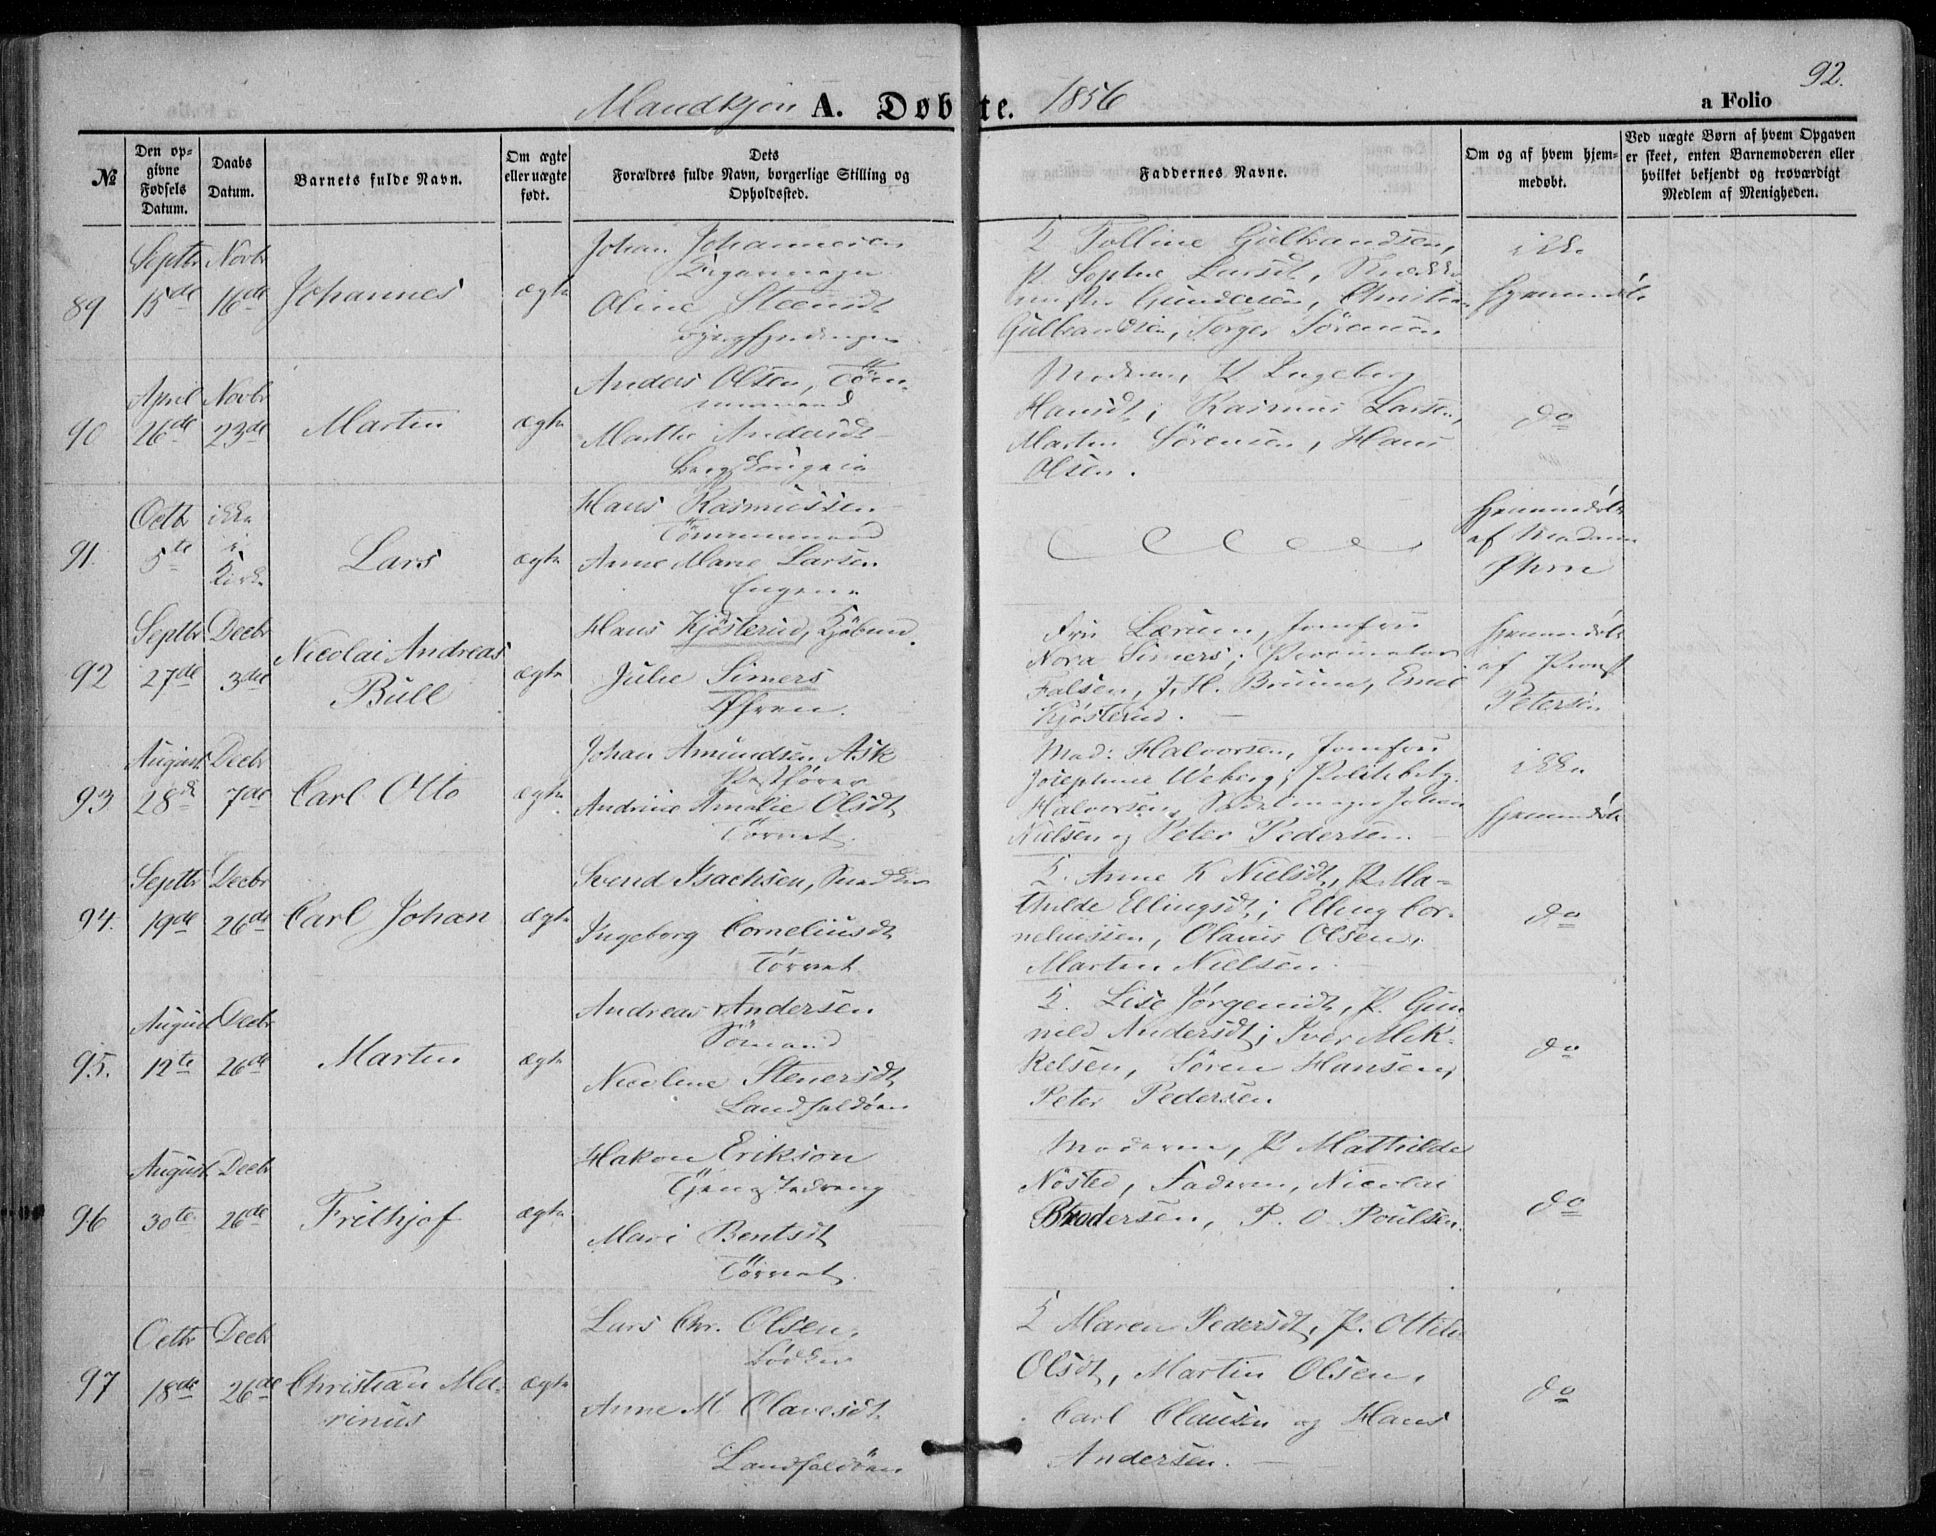 92.
Mandkjøn A. Døbte. 1856 a Folio
№
Den op-
givne
Fødsels
Datum.
Daabs
Datum.
Barnets fulde Navn.
Om ægte
eller uægte
født.
Dets
Forældres fulde Navn, borgerlige Stilling og
Opholdssted.
Faddernes Navne.
Om og af hvem hjem-
medøbt.
Ved uægte Børn af hvem Opgaven
er skeet, enten Barnemoderen eller
hvilket bekjendt og troværdigt
Medlem af Menigheden.
89
Septbr
15de
Novbr
16de
Johannes
ægte
Johan Johannesen
Oline Steensdt
Tolline Gulbrandsen,
P. Sophie Larsdt,
Gundersen, Christian
Gulbrandsen, Torger Sørensen
ikke
hjemmedøbt
90
April
26de
Novbr
23de
Martin
ægte
Anders Olsen, Töm-
mermand
Marthe Andersdt
Moderen, P. Ingeborg
Hansdt; Rasmus Larsen,
Martin Sørensen, Hans
Olsen.
do
91.
Octbr
5te
ikke
i
Kirke
Lars
ægte
Hans Rasmussen
Tömmermand
Anne Marie Larsen
Engene
hjemmedøbt
af Madam
92
Septbr
27de
Decbr
3die
Nicolai Andreas
Bull
ægte
Hans Kjøsterud, Kjøbmd.
Julie Simers
Øhren.
Fru Lærum, Jomfru
Nora Simers; Procurator
Falsen, J. H. Bruun, Emil
Kjøsterud.
hjemmedøbt
af Provst
Petersen
93
August
28de
Decbr
7de
Carl Otto
ægte
Johan Amundsen Ask
Postfører
Andrine Amalie Olsdt
Törvet.
Mad: Halvorsen, Jomfru
Josephine Weberg; Politibetj.
Halvorsen, Sadelmager Johan
Nielsen og Peter Pedersen.
ikke
hjemmedøbt
94.
Septbr
19de
Decbr
26de
Carl Johan
ægte
Svend Isachsen, Snedker
Ingeborg Corneliusdt
Törvet.
Anne K Nielsdt, P. Ma-
thilde Ellingsdt; Elling Cor-
neliussen, Olaus Olsen,
Martin Nielsen.
do
95.
August
12te
Decbr
26de
Martin
ægte
Andreas Andersen
Sömand
Nicoline Stenersdt
Landfaldöen
Lise Jørgensdt, P. Gun
nild Andersdt; Iver Mik-
kelsen, Søren Hansen,
Peter Pedersen
do
96
August
30te
Decbr
26de
Frithjof
ægte
Hakon Erikson
Mari Bentsdt
Törvet.
Moderen, P. Mathilde
Nøsted, Faderen, Nicolai
P. O Poulsen.
do
97
Octbr
18de
Decbr
26de
Christian Ma-
rinus
ægte
Lars Chr. Olsen,
Bødker
Anne M. Olavesdt
Landfaldöen
Maren Pedersdt, P. Ottilie
Olsdt, Martin Olsen,
Carl Clausen og Hans
Andersen.
do